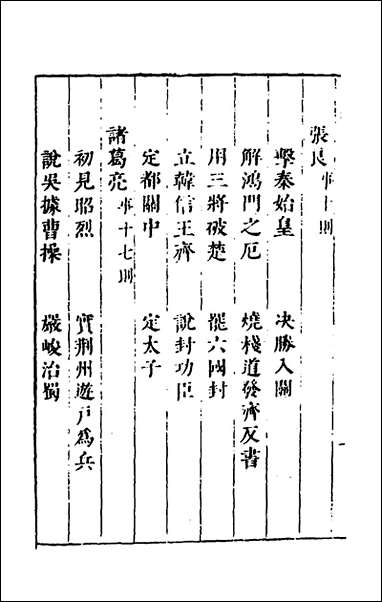 張良事十則
擊秦始皇　決勝入關
解鴻門之厄　燒棧道發齊反書
用三將破楚　罷六國封
立韓信王齊　說封功臣
定都關中　定太子
諸葛亮事十七則
初見昭烈　實荆州遊戶爲兵
說吳據曹操　嚴峻治蜀